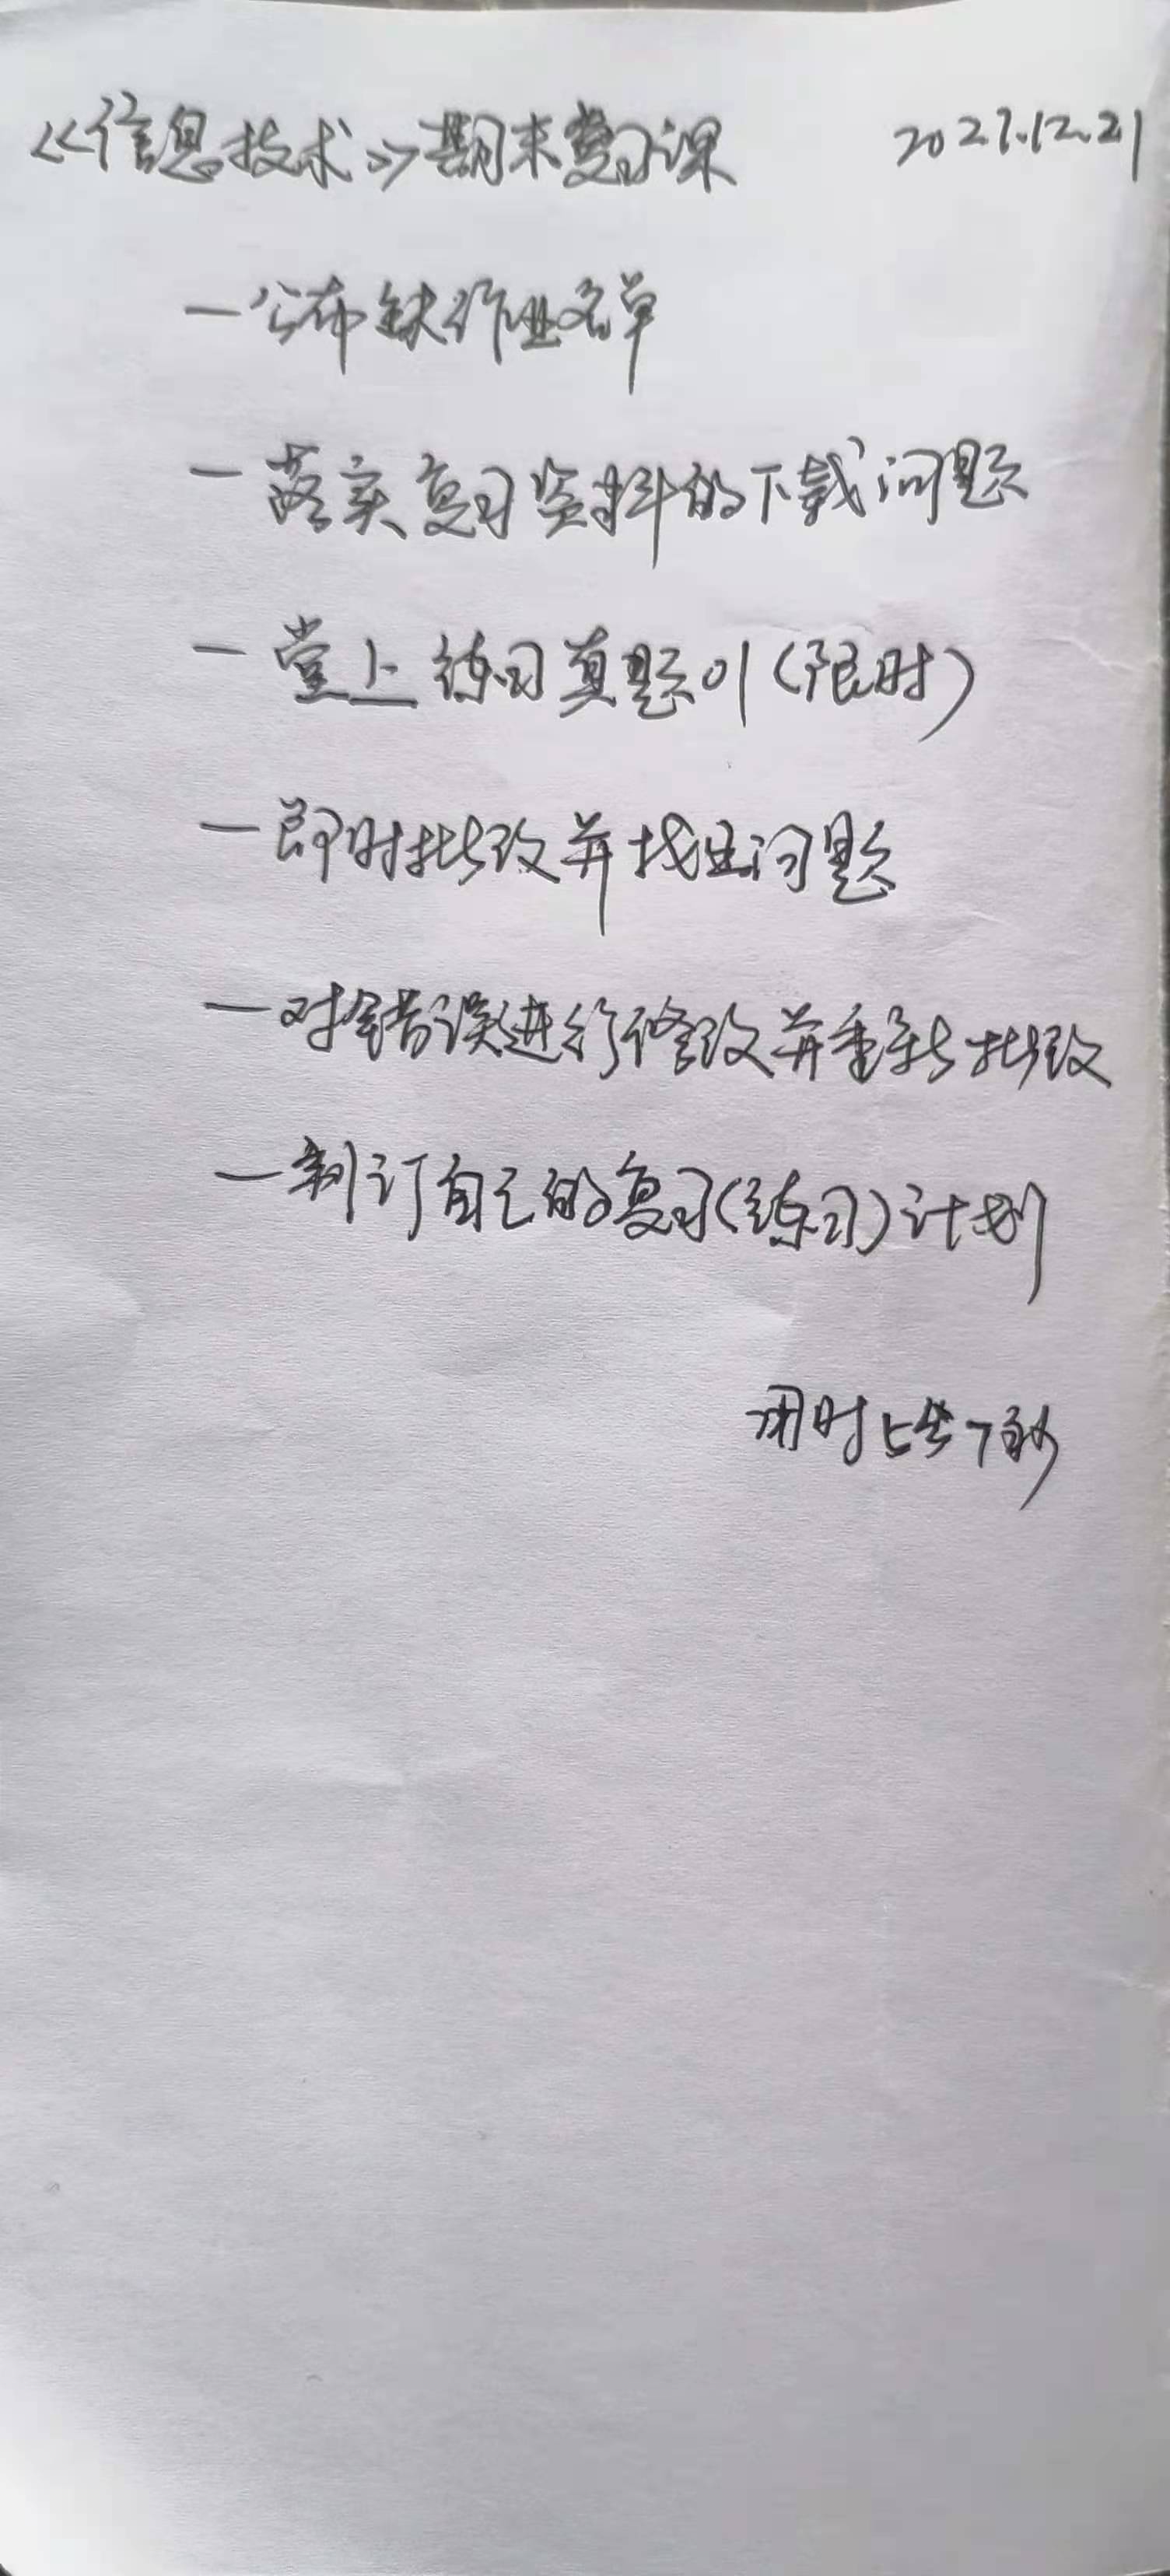 《信息技术》期末复习课 2021.12.21
一公布缺作业名单
一落实复习资料的下载问题
一堂上练习真题01(限时)
一即时批改并找出问题
一对错误进行修改并重新批改
一制订自己的复习(练习)计划
用时 秒